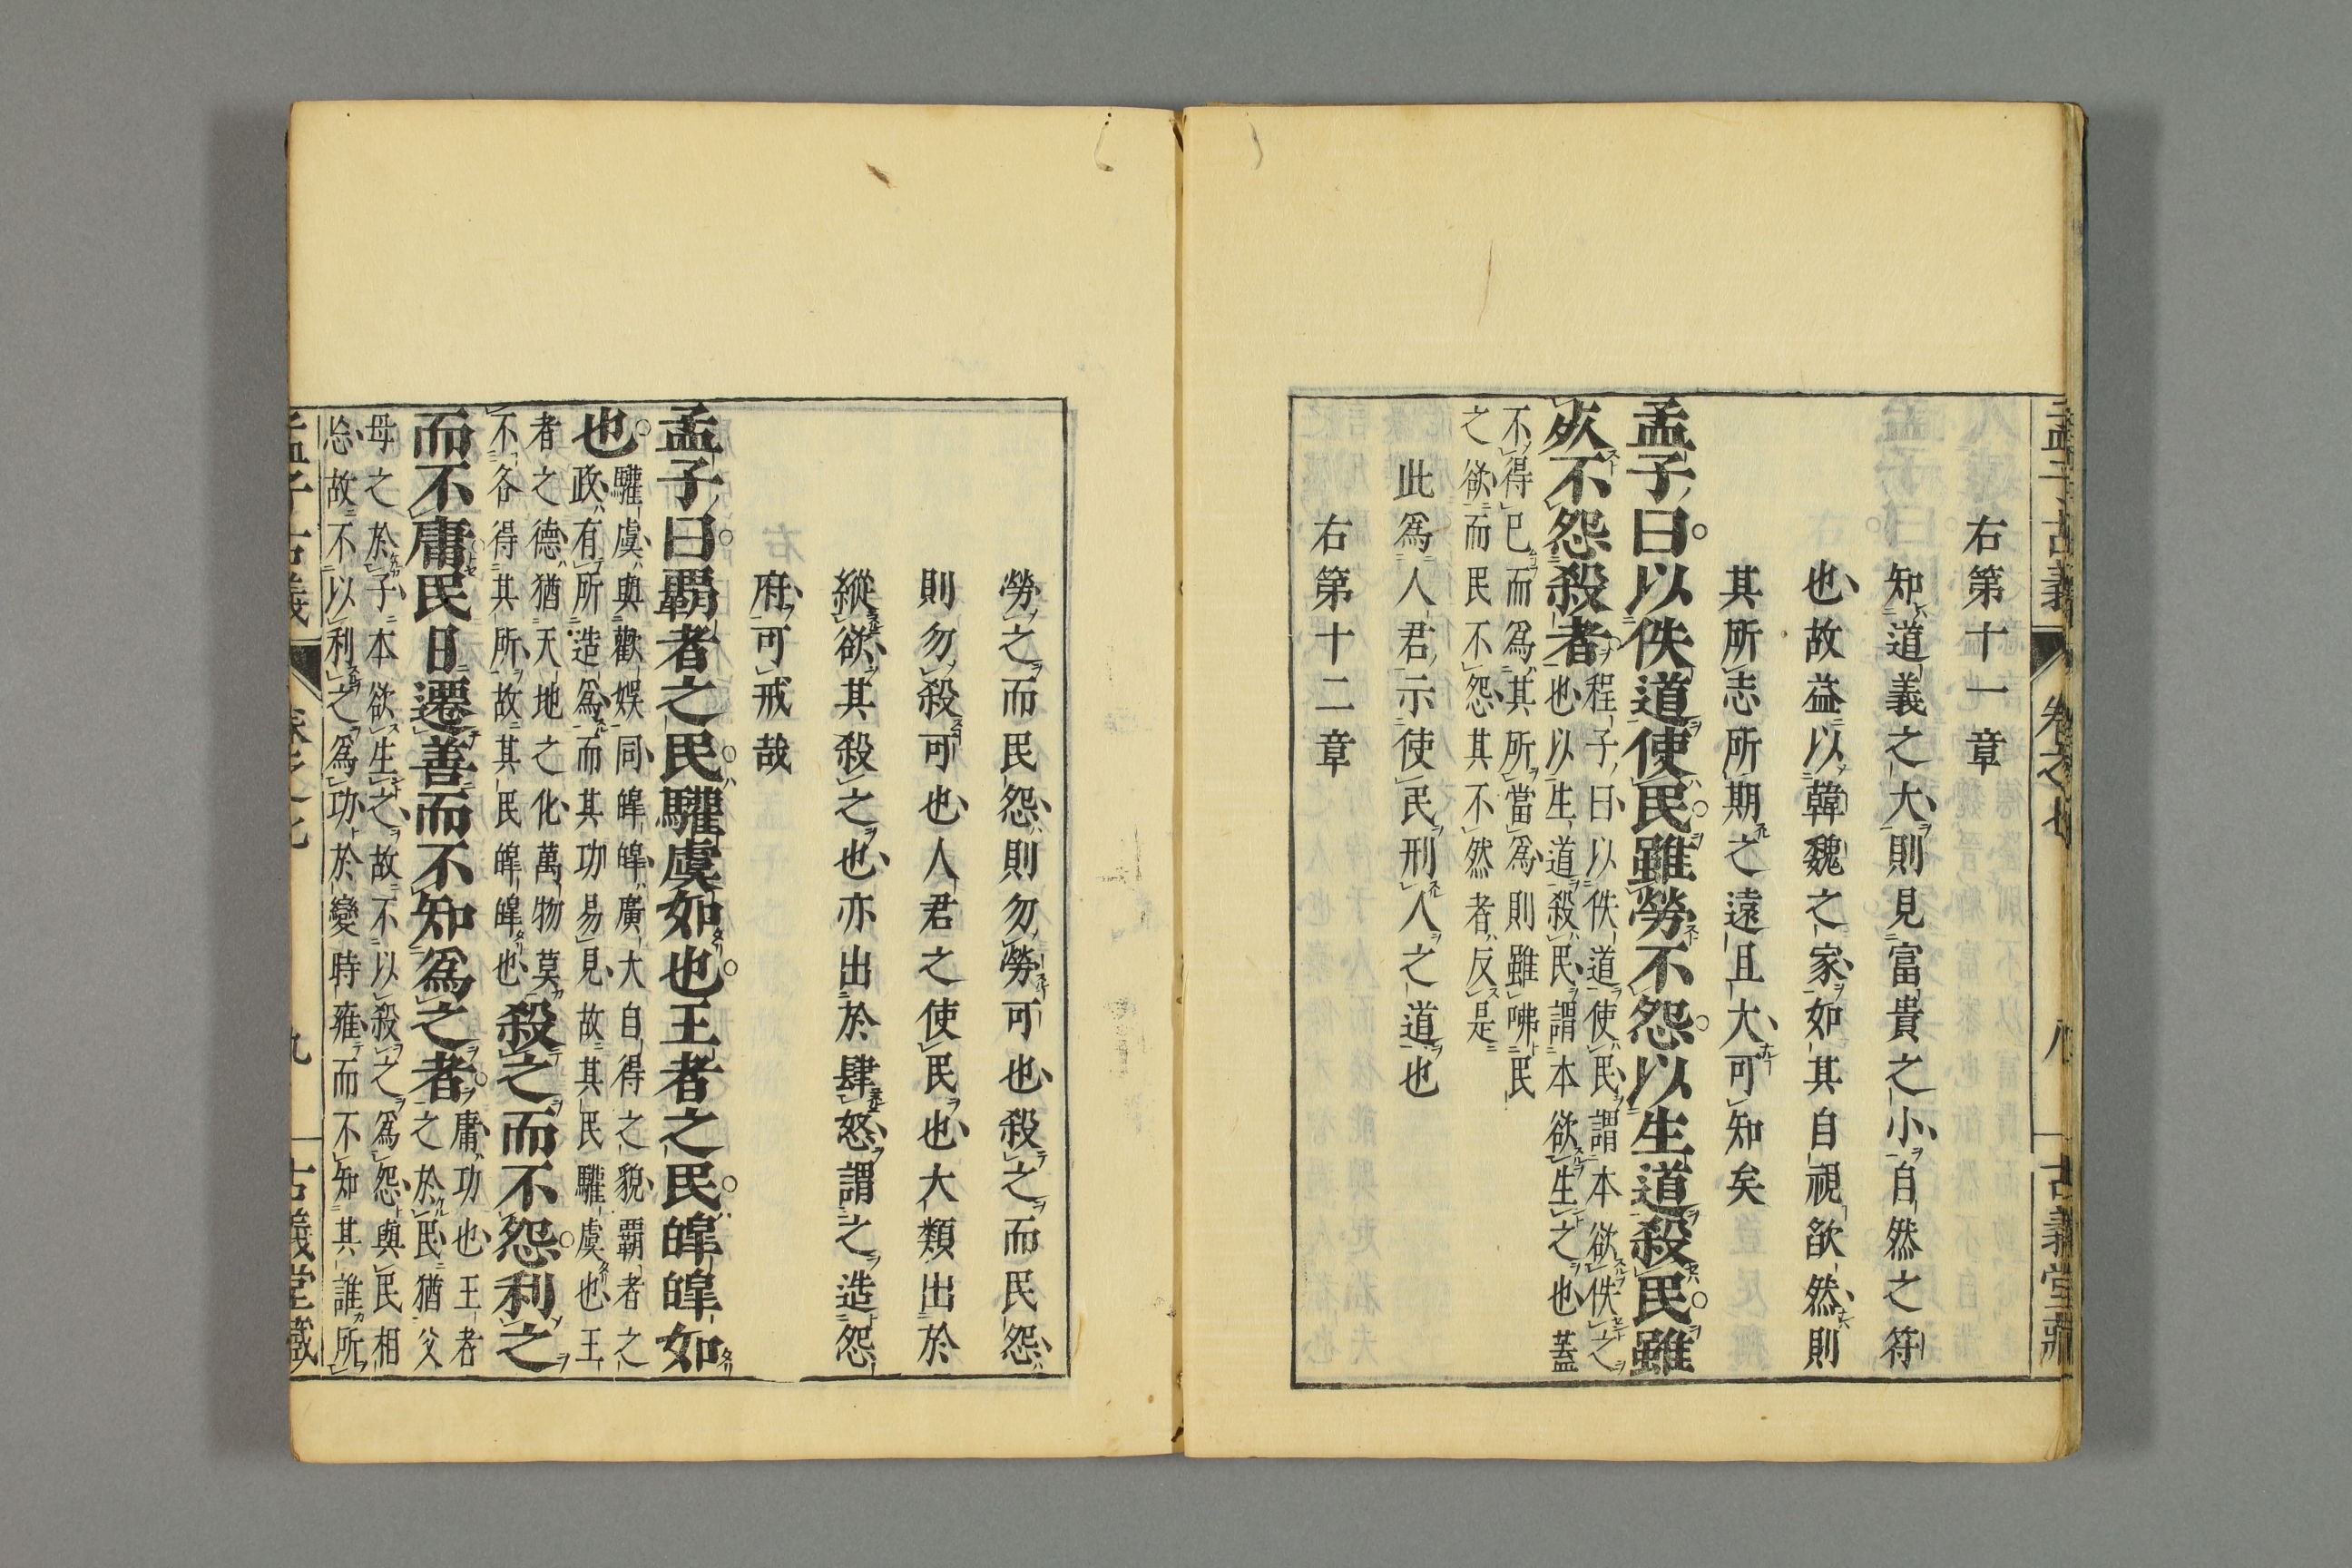 孟子古義 卷之七 八 古義堂藏
右第十一章
知道義之大則見富貴之小自然之符
也故益以韓魏之家如其自視欿然則
其所志所期之遠且大可知矣
孟子曰以佚道使民雖勞不怨以生道殺民雖
死不怨殺者
程子曰以佚道使民謂本欲佚之
也以生道殺民謂本欲生之也蓋
不得已而爲其所當爲則雖咈民
之欲而民不怨其不然者反是
此爲人君示使民刑人之道也
右第十二章
勞之而民怨則勿勞可也殺之而民怨
則勿殺可也人君之使民也大類出於
縱欲其殺之也亦出於肆怒謂之造怨
府可戒哉
孟子曰覇者之民驩虞如也王者之民皥皥如
也
驩虞與歡娛同皥皥廣大自得之貌覇者之
政有所造爲而其功易見故其民驩虞也王
者之德猶天地之化萬物莫
不各得其所故其民皥皥也
殺之而不怨利之
而不庸民日遷善而不知爲之者
庸功也王者
之於民猶父
母之於子本欲生之故不以殺之爲怨與民相
忘故不以利之爲功於變時雍而不知其誰所
孟子古義 卷之七 九 古義堂藏